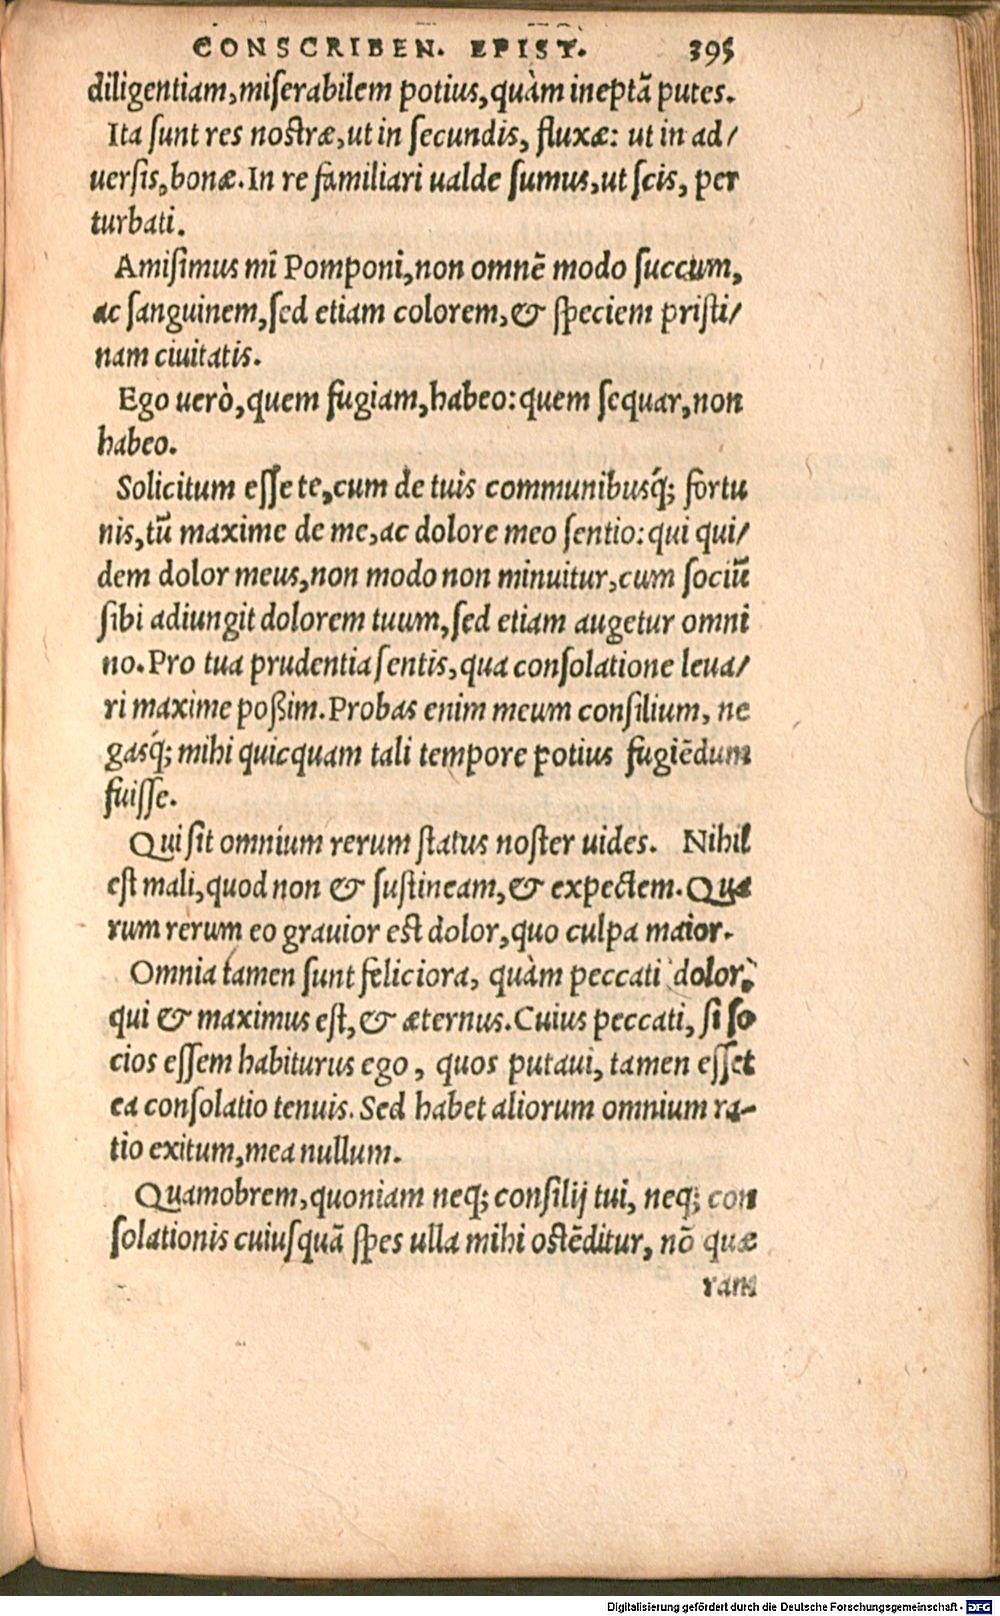 CONSCRIBEN. EPIST. 395
diligentiam, miſerabilem potius, quàm ineptã putes.
Ita ſunt res nostræ, ut in ſecundis, fluxæ: ut in ad/
uerſis, bonæ. In re familiari ualde ſumus, ut ſcis, per
turbati.
Amiſimus mi Pomponi, non omnẽ modo ſuccum,
ac ſanguinem, ſed etiam colorem, & ſpeciem priſti/
nam ciuitatis.
Ego uerò, quem fugiam, habeo: quem ſequar, non
habeo.
Solicitum eſſe te, cum de tuis communibusq́; fortu
nis, tũ maxime de me, ac dolore meo ſentio: qui qui/
dem dolor meus, non modo non minuitur, cum ſociũ
ſibi adiungit dolorem tuum, ſed etiam augetur omni
no. Pro tua prudentia ſentis, qua conſolatione leua/
ri maxime poßim. Probas enim meum conſilium, ne
gasq́; mihi quicquam tali tempore potius fugiẽdum
fuiſſe.
Qui ſit omnium rerum ſtatus noſter uides. Nihil
est mali, quod non & ſuſtineam, & expectem. Quæ
rum rerum eo grauior est dolor, quo culpa maior.
Omnia tamen ſunt feliciora, quàm peccati dolor,
qui & maximus eſt, & æternus. Cuius peccati, ſi ſo
cios eſſem habiturus ego, quos putaui, tamen eſſet
ea conſolatio tenuis. Sed habet aliorum omnium ra-
tio exitum, mea nullum.
Quamobrem, quoniam neq; conſilij tui, neq; con
ſolationis cuiuſquã ſpes ulla mihi ostẽditur, nõ quæ
ram
Digitalisierung gefördert durch die Deutsche Forschungsgemeinschaft - DFG